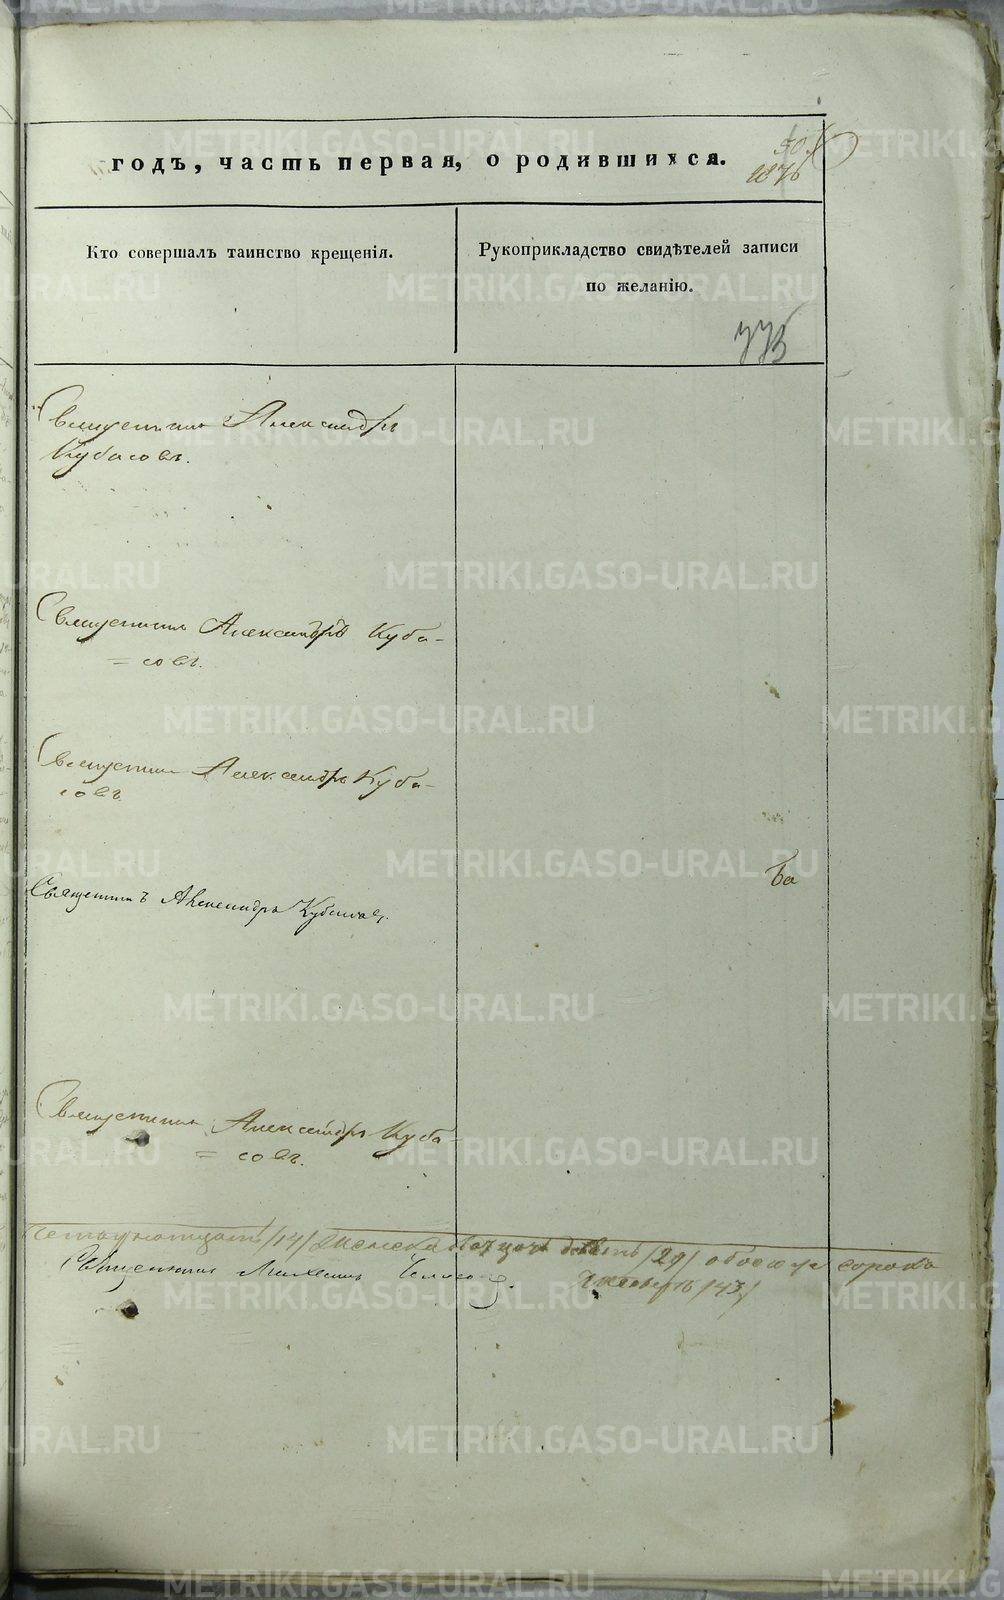 годъ, часть первая, о родившихся.
50
1876
Кто совершалъ таинство крещенія.
Рукоприкладство свидѣтелей записи
по желанію.
Священникъ Александръ
Кубасовъ.
Священникъ Александръ Куба-
= совъ.
Священникъ Александръ Куба-
совъ
Священникъ Александръ Кубасовъ.
Ба
Священникъ Александръ Куба-
= совъ.
/14/ женска двадцать девять /29/ обоего сорокъ
Священникъ
/43/
METRIKI.GASO-URAL.RU